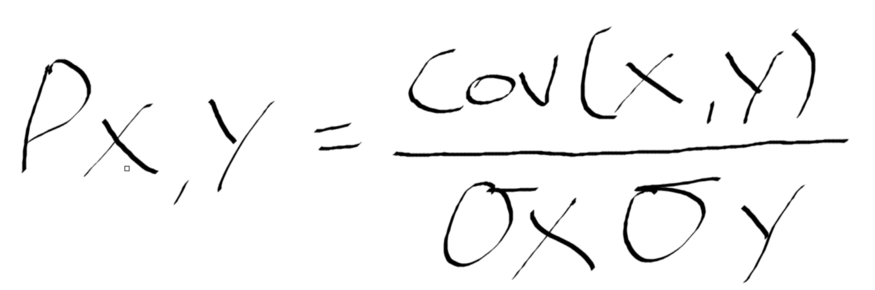 ρX,Y = Cov(X,Y)
σX σY